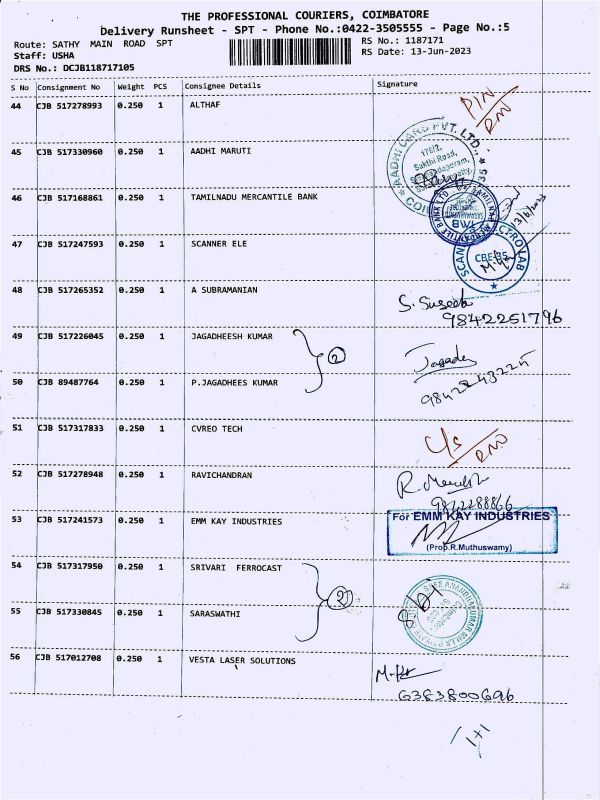 THE PROFESSIONAL COURIERS, COIMBATORE
Delivery Runsheet - SPT - Phone No.:0422-3505555 - Page No.:5
Route: SATHY MAIN ROAD SPT
RS No.: 1187171
Staff: USHA
RS Date: 13-Jun-2023
DRS No.: DCJB118717105
S No Consignment No Weight PCS Consignee Details Signature
44 CJB 517278993 0.250 1 ALTHAF
PIN/RNO
45 CJB 517330960 0.250 1 AADHI MARUTI
AADHI CARS PVT. LTD.,
176/2,
Sakthi Road,
46 CJB 517168861 0.250 1 TAMILNADU MERCANTILE BANK
TMB
47 CJB 517247593 0.250 1 SCANNER ELE
CBE-35
48 CJB 517265352 0.250 1 A SUBRAMANIAN
S. Suseela
9842251796
49 CJB 517226045 0.250 1 JAGADHEESH KUMAR
2
Jagadee
50 CJB 89487764 0.250 1 P.JAGADHEES KUMAR
51 CJB 517317833 0.250 1 CVREO TECH
52 CJB 517278948 0.250 1 RAVICHANDRAN
53 CJB 517241573 0.250 1 EMM KAY INDUSTRIES
For EMM KAY INDUSTRIES
(Prop.R.Muthuswamy)
54 CJB 517317950 0.250 1 SRIVARI FERROCAST
2
55 CJB 517330845 0.250 1 SARASWATHI
56 CJB 517012708 0.250 1 VESTA LASER SOLUTIONS
6383800696
1+1